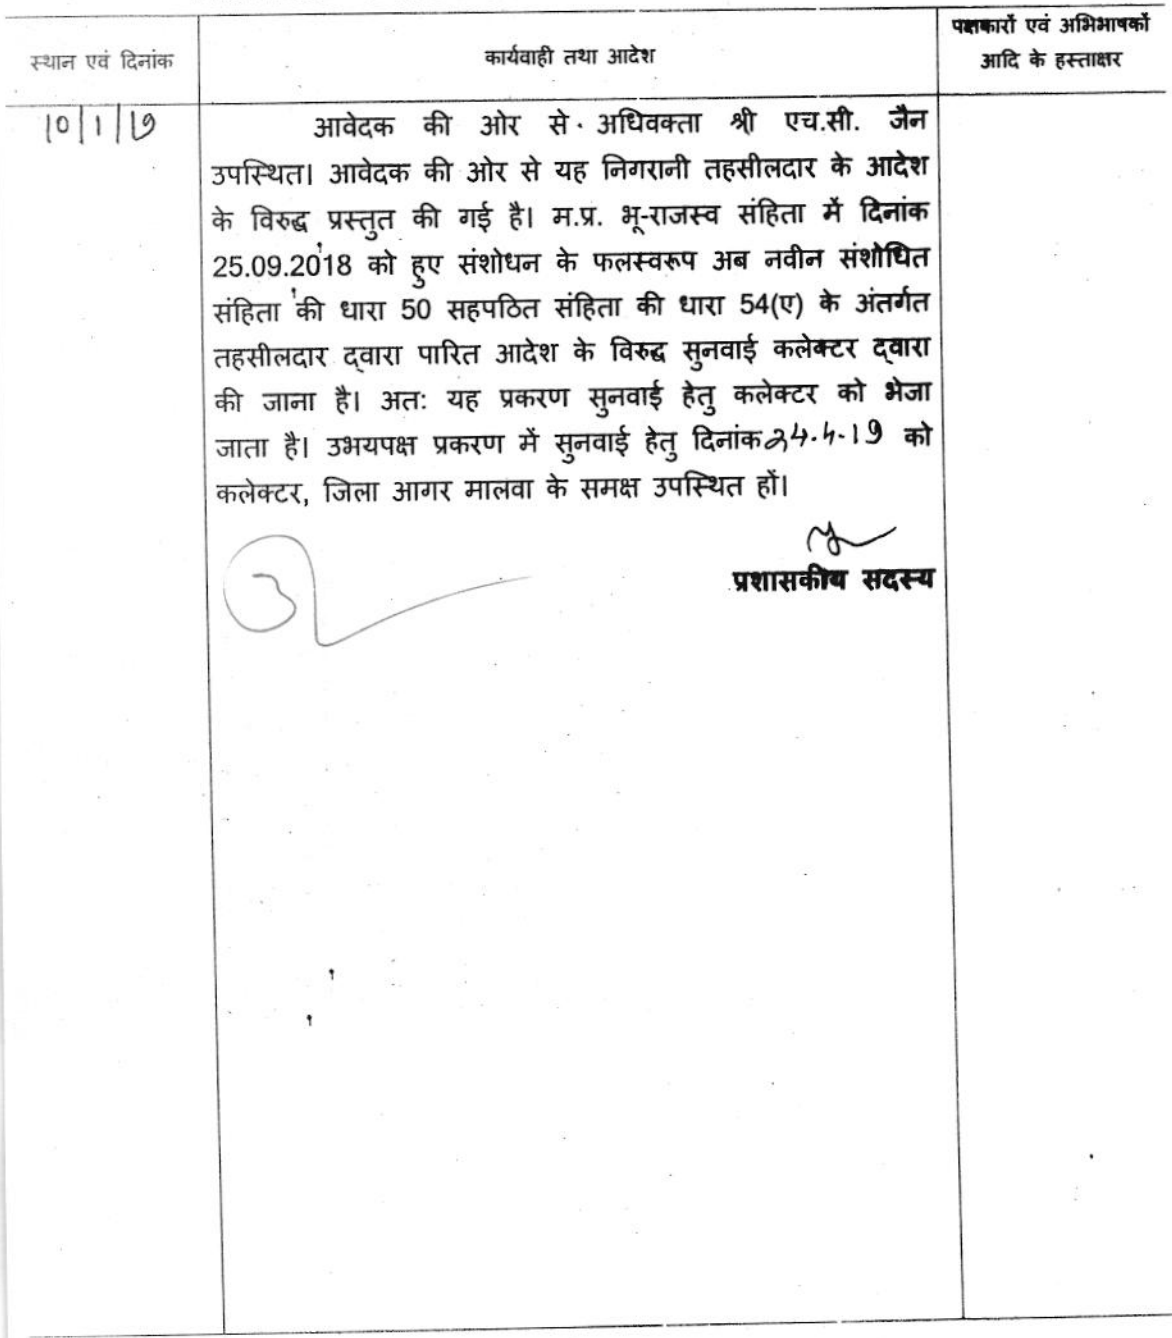 स्थान एवं दिनांक
कार्यवाही तथा आदेश
पक्षकारों एवं अभिभाषकों
आदि के हस्ताक्षर
10|1|19
आवेदक की ओर से अधिवक्ता श्री एच.सी. जैन
उपस्थित। आवेदक की ओर से यह निगरानी तहसीलदार के आदेश
के विरुद्ध प्रस्तुत की गई है। म.प्र. भू-राजस्व संहिता में दिनांक
25.09.2018 को हुए संशोधन के फलस्वरूप अब नवीन संशोधित
संहिता की धारा 50 सहपठित संहिता की धारा 54(ए) के अंतर्गत
तहसीलदार द्वारा पारित आदेश के विरुद्ध सुनवाई कलेक्टर द्वारा
की जाना है। अतः यह प्रकरण सुनवाई हेतु कलेक्टर को भेजा
जाता है। उभयपक्ष प्रकरण में सुनवाई हेतु दिनांक 24.4.19 को
कलेक्टर, जिला आगर मालवा के समक्ष उपस्थित हों।
प्रशासकीय सदस्य